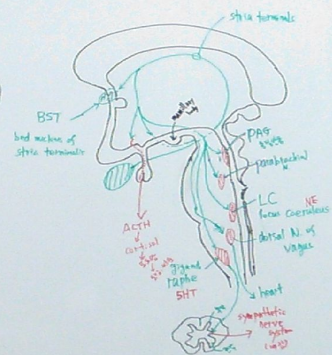 stria terminals
BST
bed nucleus of
stria terminalis
mamillary
body
PAG
parabrachial
N.
LC NE
locus coeruleus
dorsal N. of
vagus
ACTH
cortisol
raphe
5HT
heart
sympathetic
nerve
system